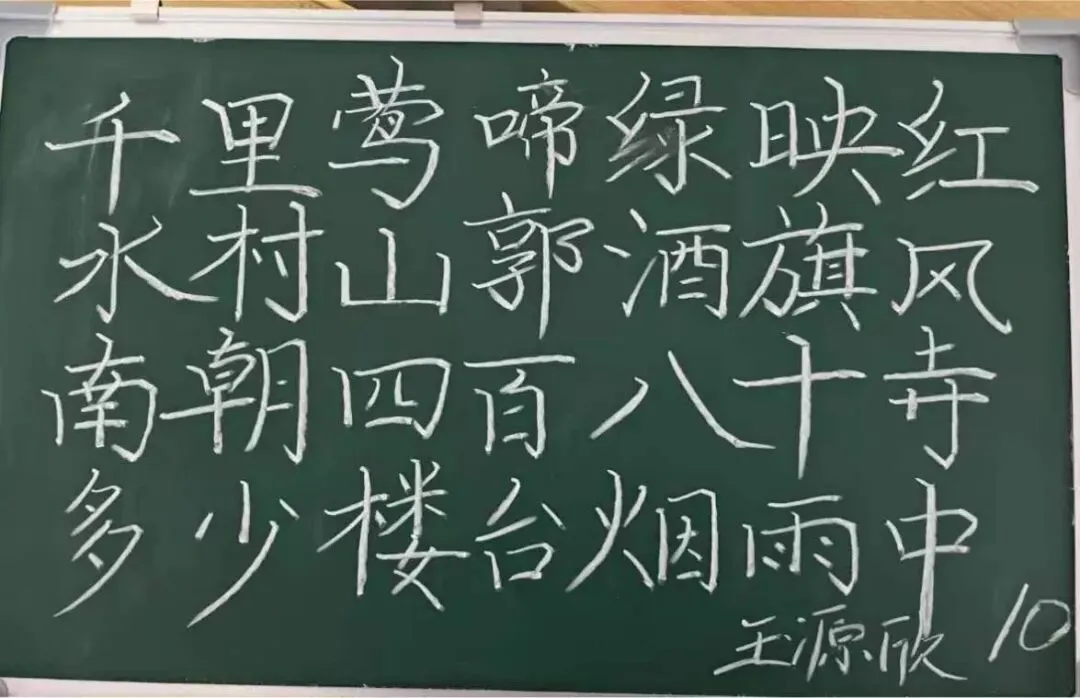 千里莺啼绿映红
水村山郭酒旗风
南朝四百八十寺
多少楼台烟雨中
王源欣 10